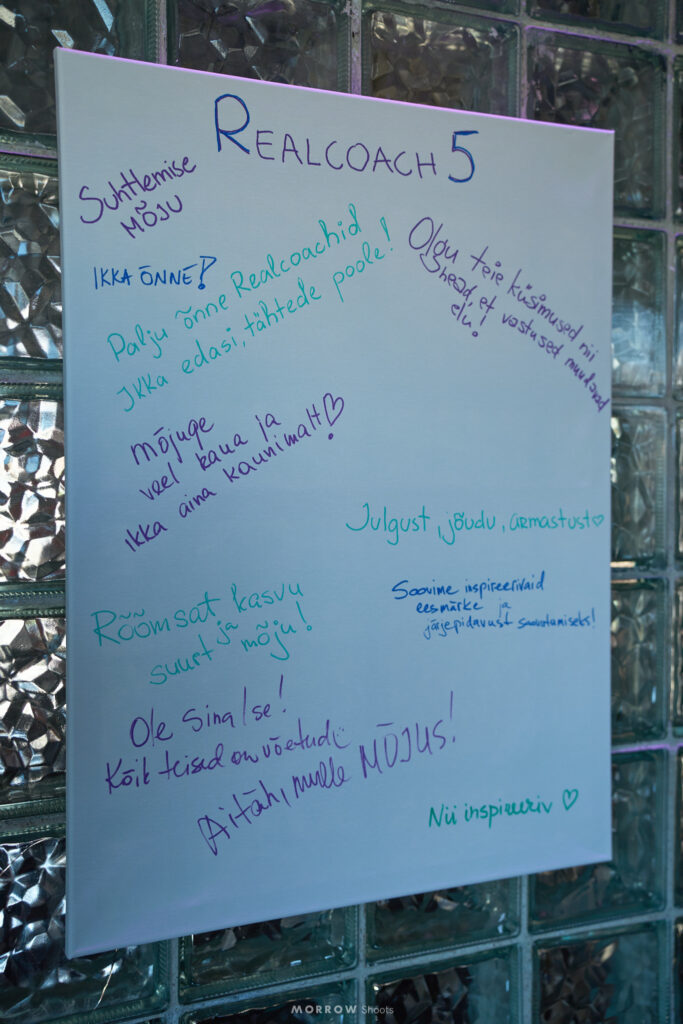 REALCOACH 5
Suhtlemise
MÕJU
IKKA ÕNNE!
Palju õnne Realcoachid
Ikka edasi, tähtede poole!
Olgu teie küsimused nii
head, et vastused muudavad
elu!
mõjuge
veel kaua ja
ikka aina kaunimalt!
Julgust, jõudu, armastust
Soovime inspireerivaid
eesmärke ja
järjepidavust saavutamiseks!
Rõõmsat kasvu
ja
suurt mõju!
Ole Sina Ise!
Kõik teised on võetud
Aitäh, mulle MÕJUS!
Nii inspireeriv
MORROW Shoots